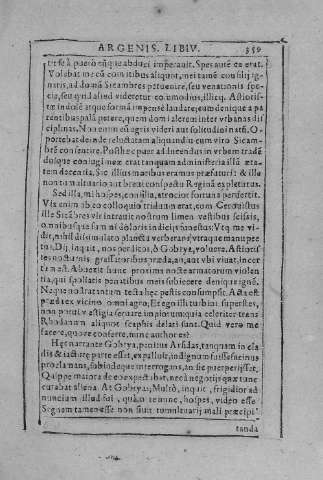 ARGENIS. LIB. IV. 359
tirse à puero eúnque abduci imperauit. Spes autē ea erat.
Volebat me cū comitibus aliquot, mei tamē consilij ig-
naris, ad domū Sicambres peruenire, seu venationis spe-
cie, seu quid aliud videretur commodius, illicq. Astioris-
tæ indolē atque formā impensè laudare; eum denique à pa-
rentibus palā petere, quem domi alerem inter vrbanas dis-
ciplinas. Non enim eū agris videri aut solitudini natū. O-
portebat deinde reluctatam aliquandiu cum viro Sicam-
brē consentire. Post hęc puer adducendus in vrbem tradē-
dusque coniugi meæ erat tanquam administeria illā æta-
tem decentia. Sic illius maribus eramus præfaturi: & illa
non tumultuario aut breui conspectu Reginā expleturus.
Sed illa, mi hospes, consilia, atrocior fortuna peruertit.
Vix enim ab eo colloquio triduum erat, cum Gerauistus
ille Sicābres vir intrauit nostrum limen vestibus scissis,
omnibusque summi doloris indicijs funestus: Vtq; me vi-
dit, nihil dissimulato planctu verberans vtraque manu pec-
tus, Dij, inquit, nos perdidos, ô Gobrya, voluere. Astioris-
tes nocturnis grassatoribus præda, an, aut vbi viuat, incer-
tum est. Abactus hunc proxima nocte armatorum violen-
tia, qui spoliatis penatibus meis subiecere denique ignē.
Neque nostra tantum tecta hęc pestis consumpsit. Acta est
præda ex vicino omni agro; Et ego illi turbini superstes,
non potui vestigia seruare impiorum; quia celeriter trans
Rhodanum aliquot scaphis delati sunt. Quid vero me
facere, quo re conferre, nunc author es?
Hęc narrante Gobrya, penitus Arsidas, tanquam in cla-
dis & iacturæ parte esset, expalluit, indignum fuisse facinus
proclamans, subindeque interrogans, an sic puer perisset.
Quippe maiora de eo expectabat, necā negotijs quæ tunc
curabat aliena. At Gobryas; Multò, inquit, frigidior ad
nuncium illud fui, quàm te nunc, hospes, video esse
Segnam tamen esse non siuit tumultuarij mali præcipi-
tanda